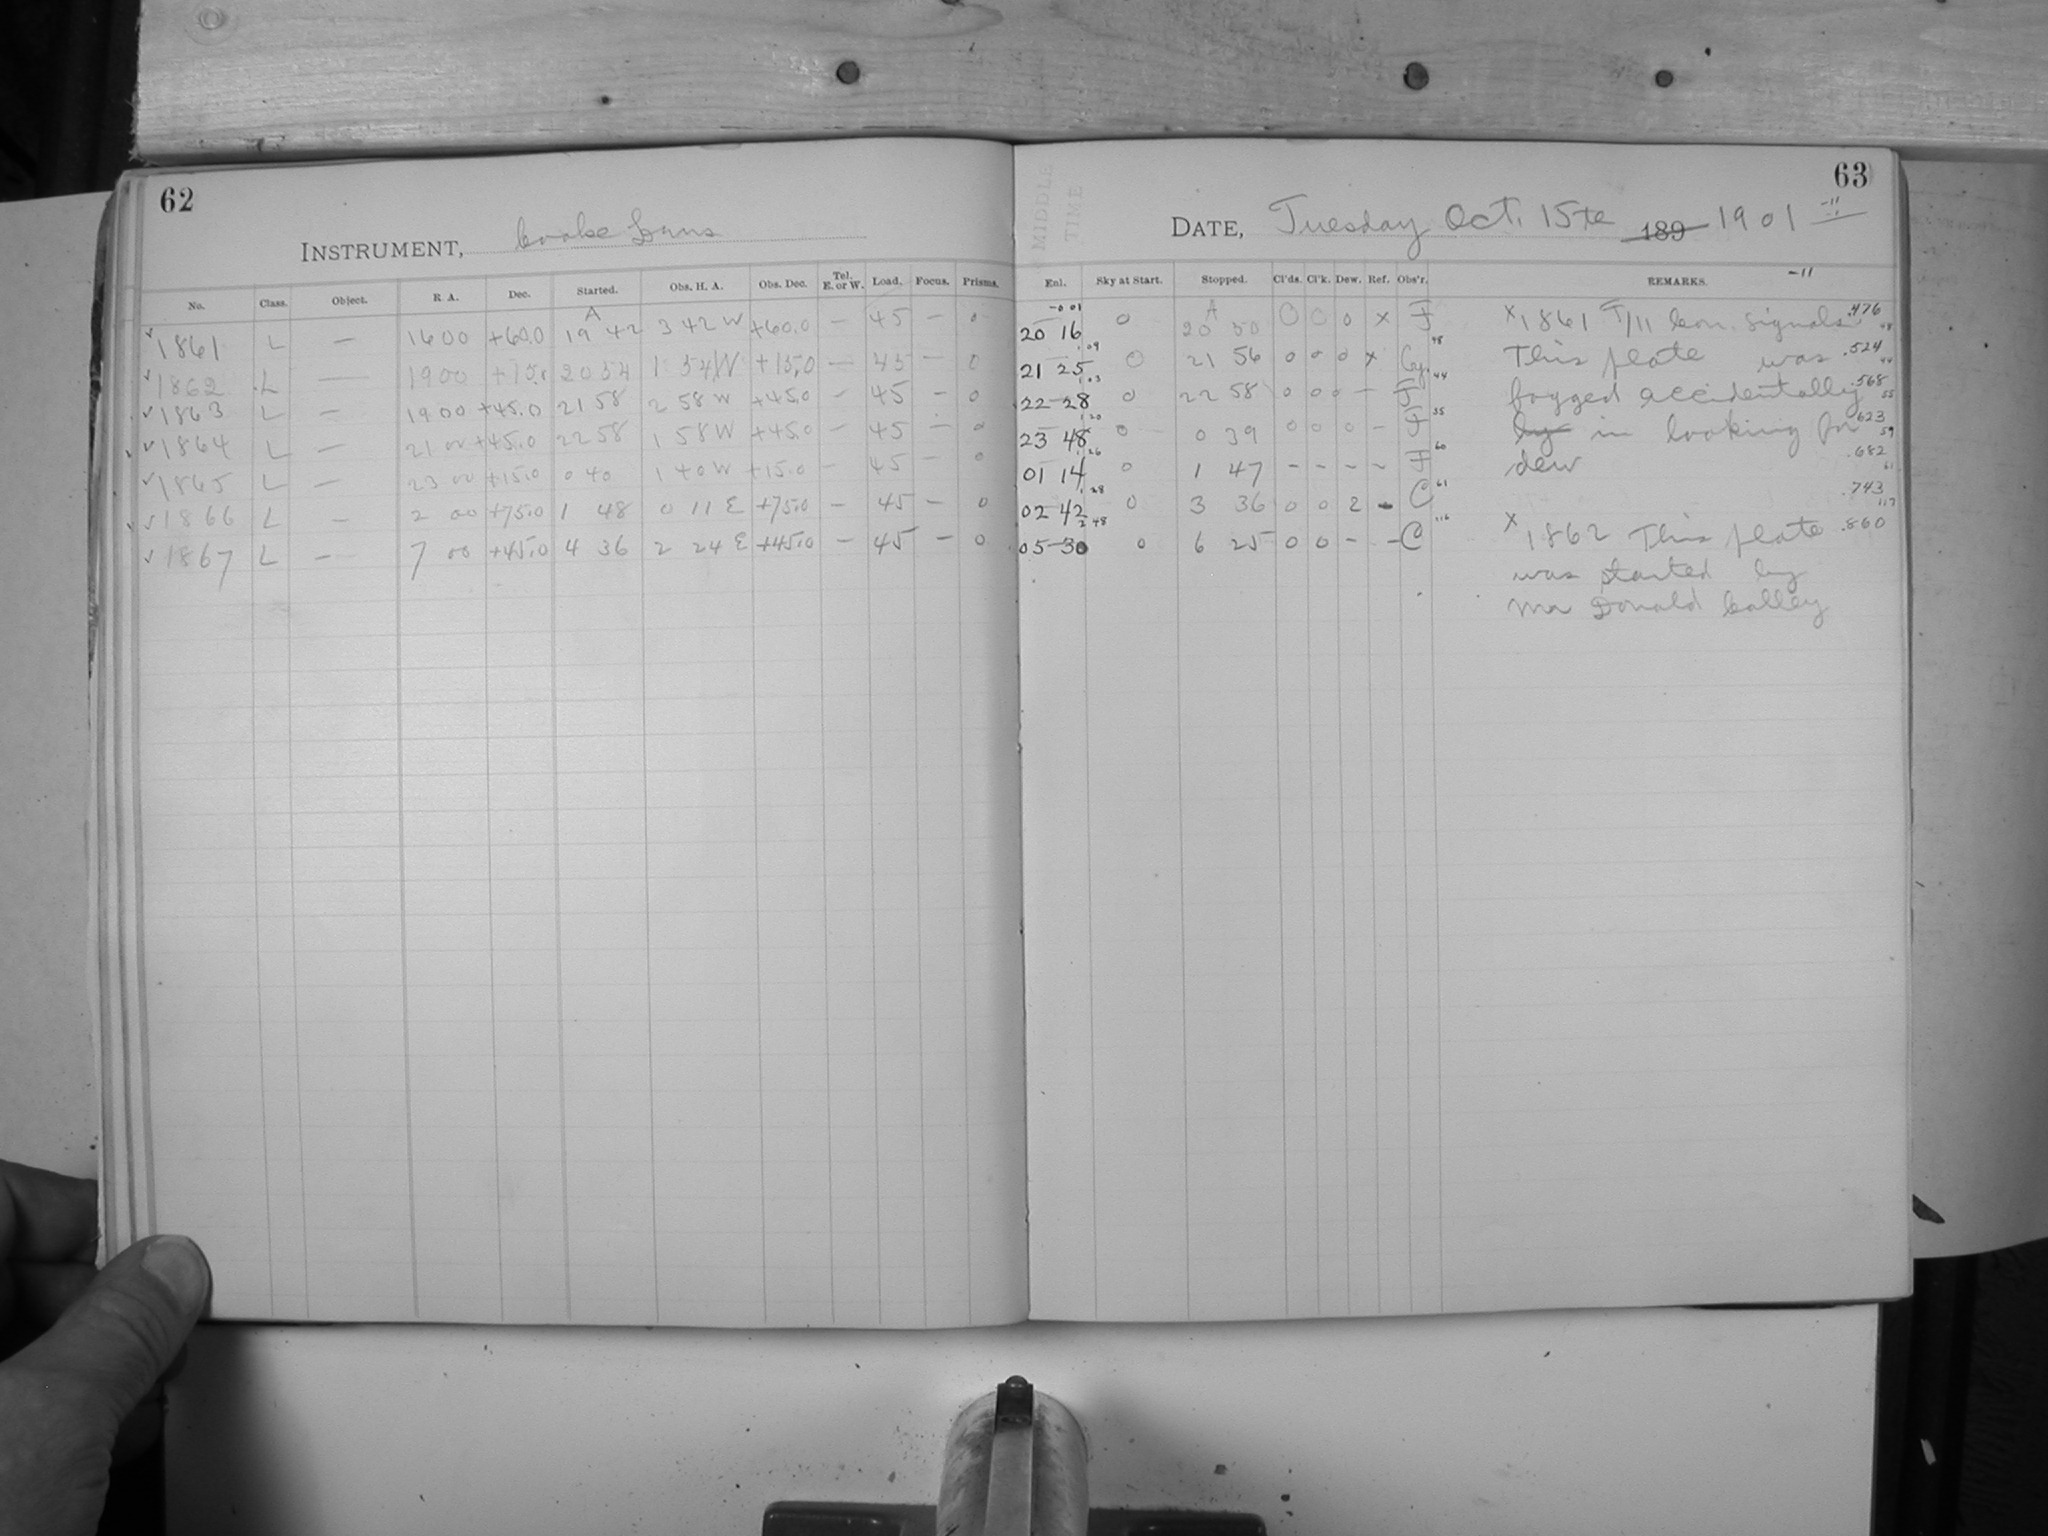 62
INSTRUMENT, Cooke Lens
No. Class. Object. R. A. Dec. Started. Obs. H. A. Obs. Dec. Tel. E. or W. Load. Focus. Prisms.
A
✓ 1861 L — 16 00 +60.0 19 42 3 42 W +60.0 — 45 — 0
✓ 1862 L — 19 00 +15.0 20 54 1 54 W +15.0 — 45 — 0
✓ 1863 L — 19 00 +45.0 21 58 2 58 W +45.0 — 45 — 0
✓ 1864 L — 21 00 +45.0 22 58 1 58 W +45.0 — 45 — 0
✓ 1865 L — 23 00 +15.0 0 40 1 40 W +15.0 — 45 — 0
✓ 1866 L — 2 00 +75.0 1 48 0 11 E +75.0 — 45 — 0
✓ 1867 L — 7 00 +45.0 4 36 2 24 E +45.0 — 45 — 0
63
MIDDLE
TIME
DATE, Tuesday Oct. 15th 189 1901 -11
Enl. Sky at Start. Stopped. Cl'ds. Cl'k. Dew. Ref. Obs'r. REMARKS. -11
-0 01 A
20 16 0 20 50 0 0 0 x F
1 09 48
21 25 0 21 56 0 0 0 x Cy.
1 03 44
22 28 0 22 58 0 0 0 — F
1 20 55
23 48 0 0 39 0 0 0 — F
1 26 60
01 14 0 1 47 - - - - F
1 28 61
02 42 0 3 36 0 0 2 - C
2 48 116
05 30 0 6 25 0 0 - - C
x 1861 T/11 Con. signals .476
48
This plate was .524
44
fogged accidentally .568
55
by in looking for .623
59
dew .682
61
.743
117
x 1862 This plate .860
was started by
Mr Donald Calley